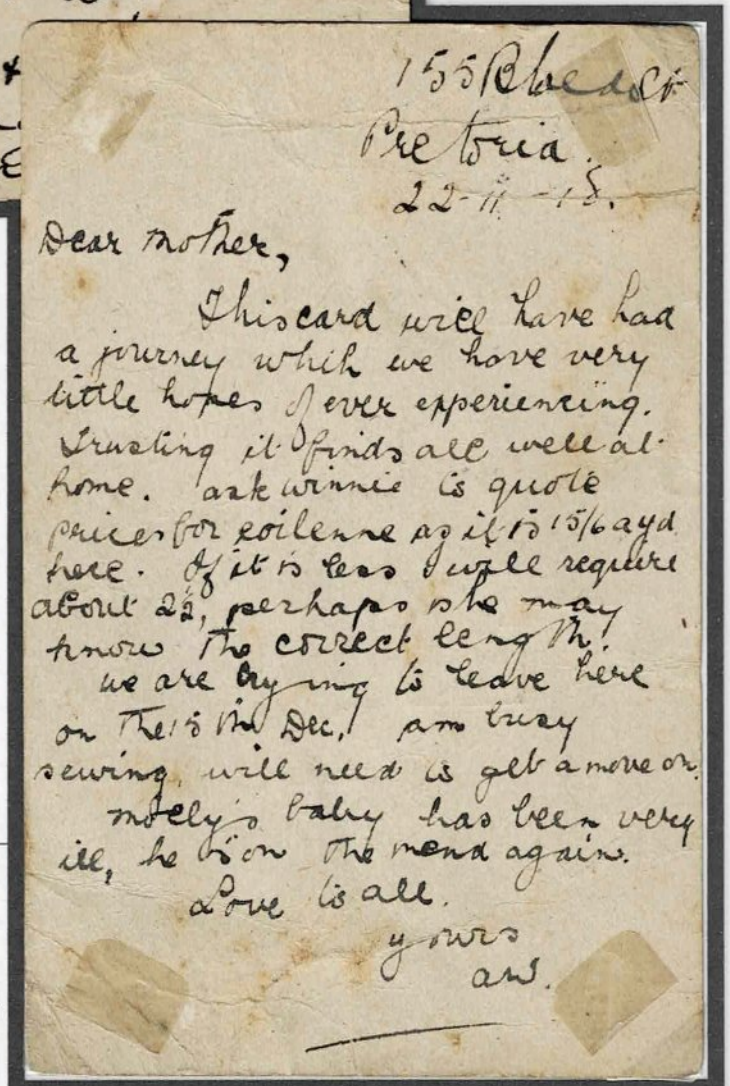 155 Bloed St
Pretoria.
22-11-18.
Dear Mother,
This card will have had
a journey which we have very
little hopes of ever experiencing.
Trusting it finds all well at
home. ask winnie to quote
prices for eoilenne as it is 15/6 a yd
here. If it is less I will require
about 2½, perhaps she may
know the correct length.
we are trying to leave here
on the 15th Dec. am busy
sewing, will need to get a move on.
Molly's baby has been very
ill, he is on the mend again.
Love to all.
yours